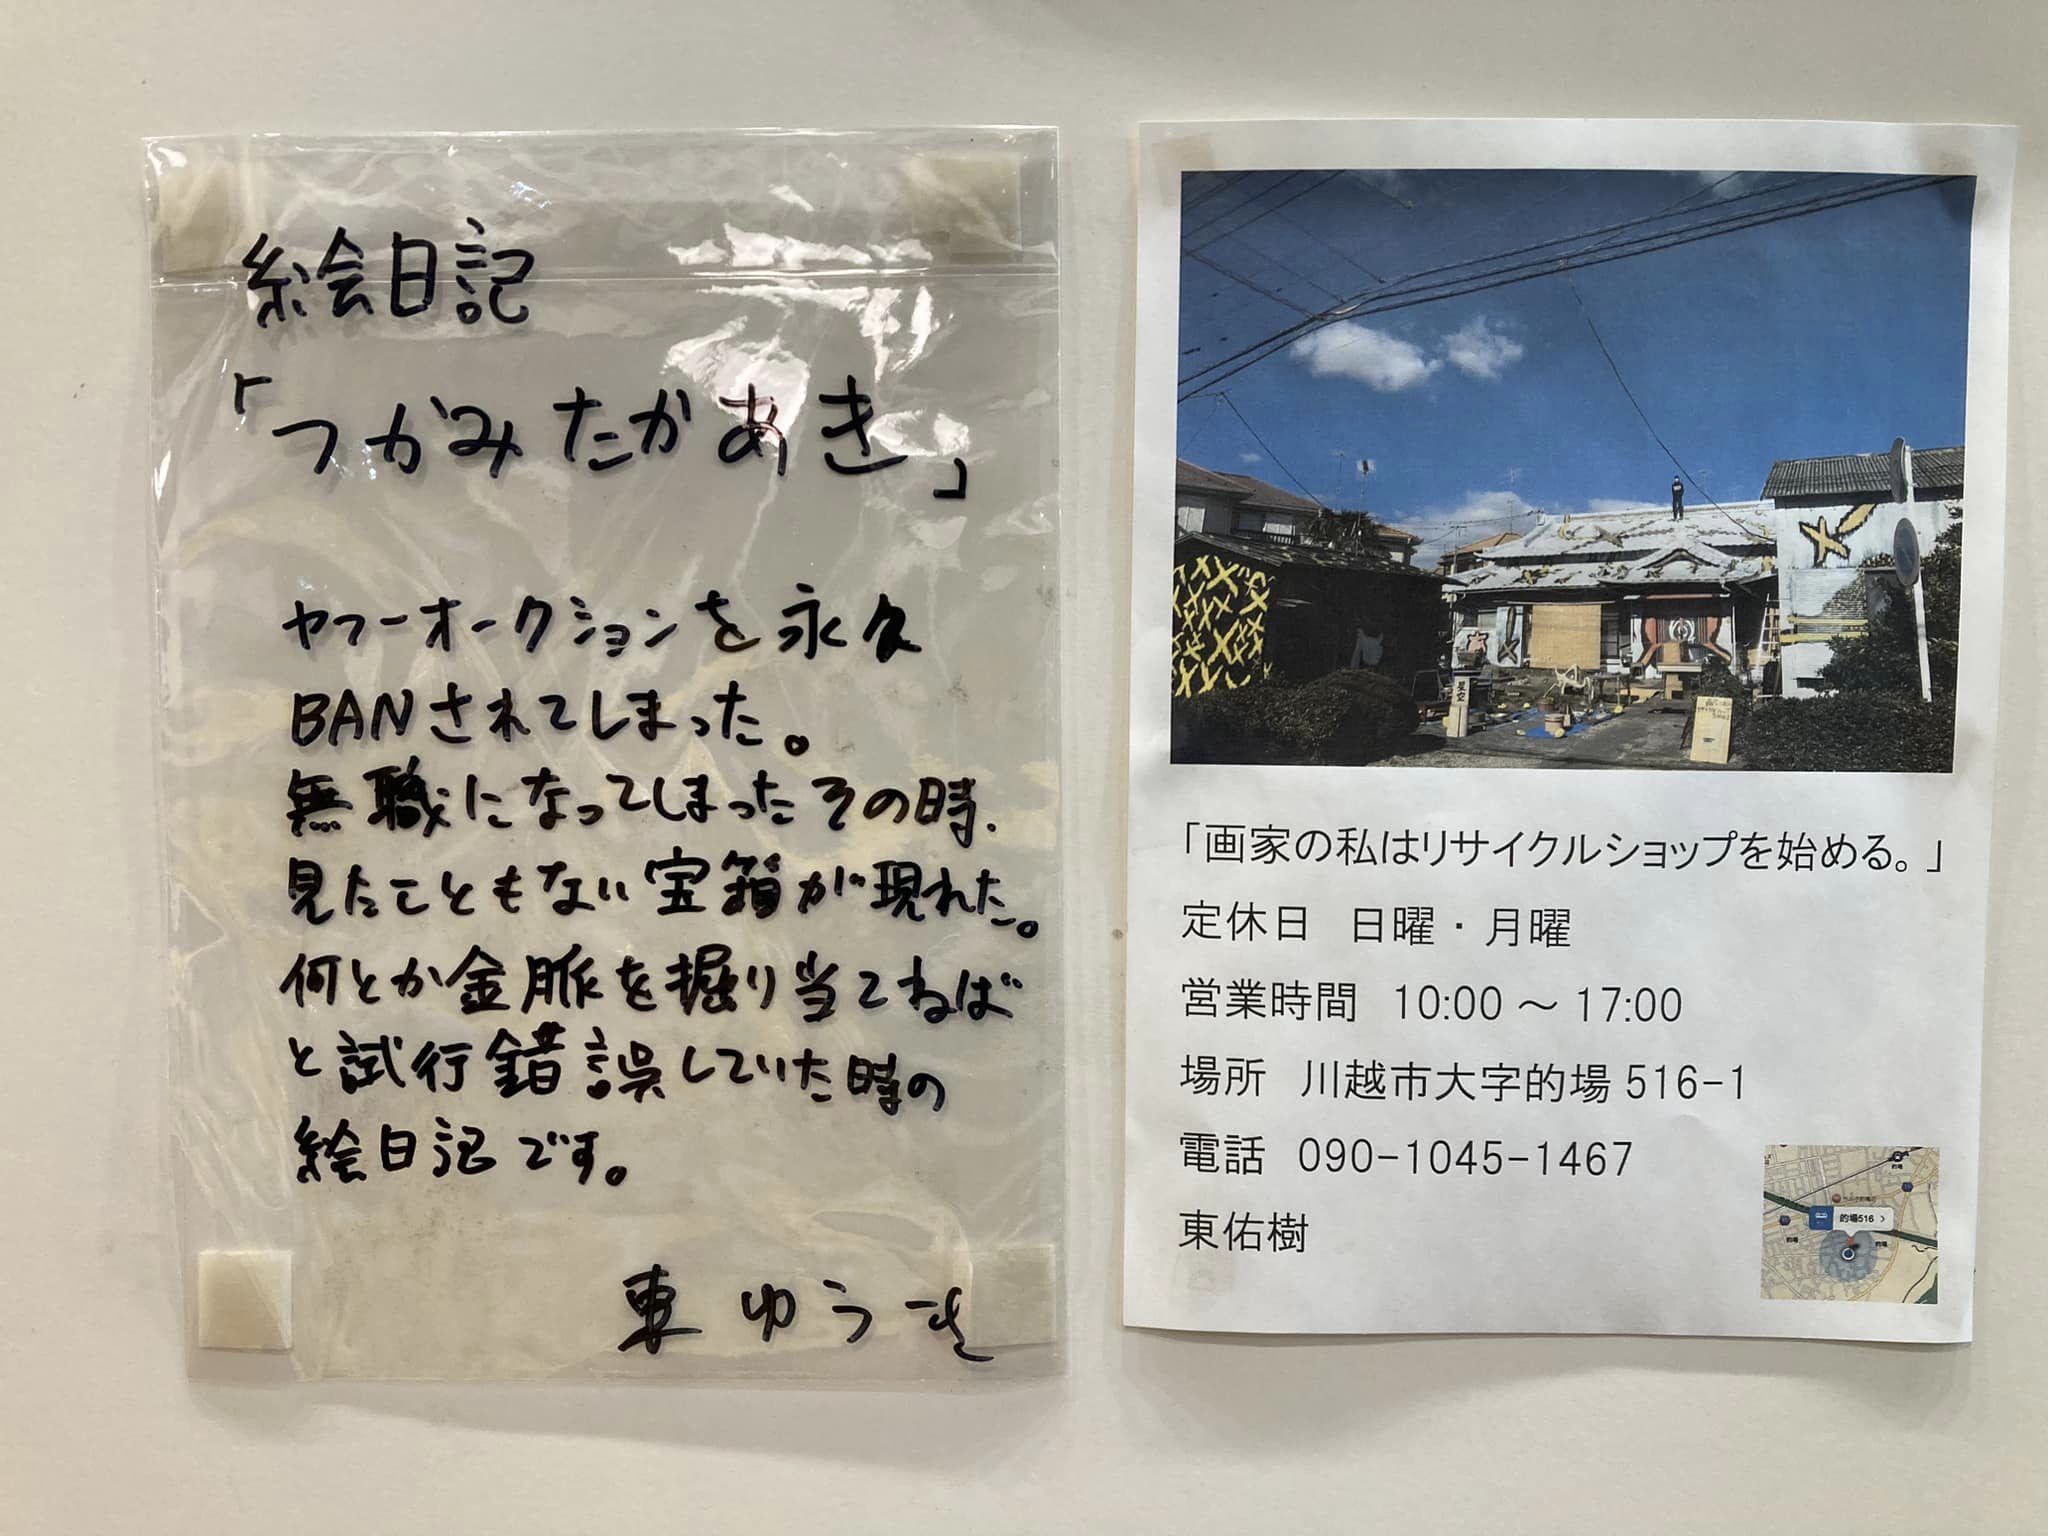 絵日記
「つかみたかあき」
ヤフーオークションを永久
BANされてしまった。
無職になってしまったその時、
見たこともない宝箱が現れた。
何とか金脈を掘り当てねば
と試行錯誤していた時の
絵日記です。
東ゆうき
星空
「画家の私はリサイクルショップを始める。」
定休日 日曜・月曜
営業時間 10:00 ～ 17:00
場所 川越市大字的場 516-1
電話 090-1045-1467
東佑樹
的場
的場516 >
的場
的場